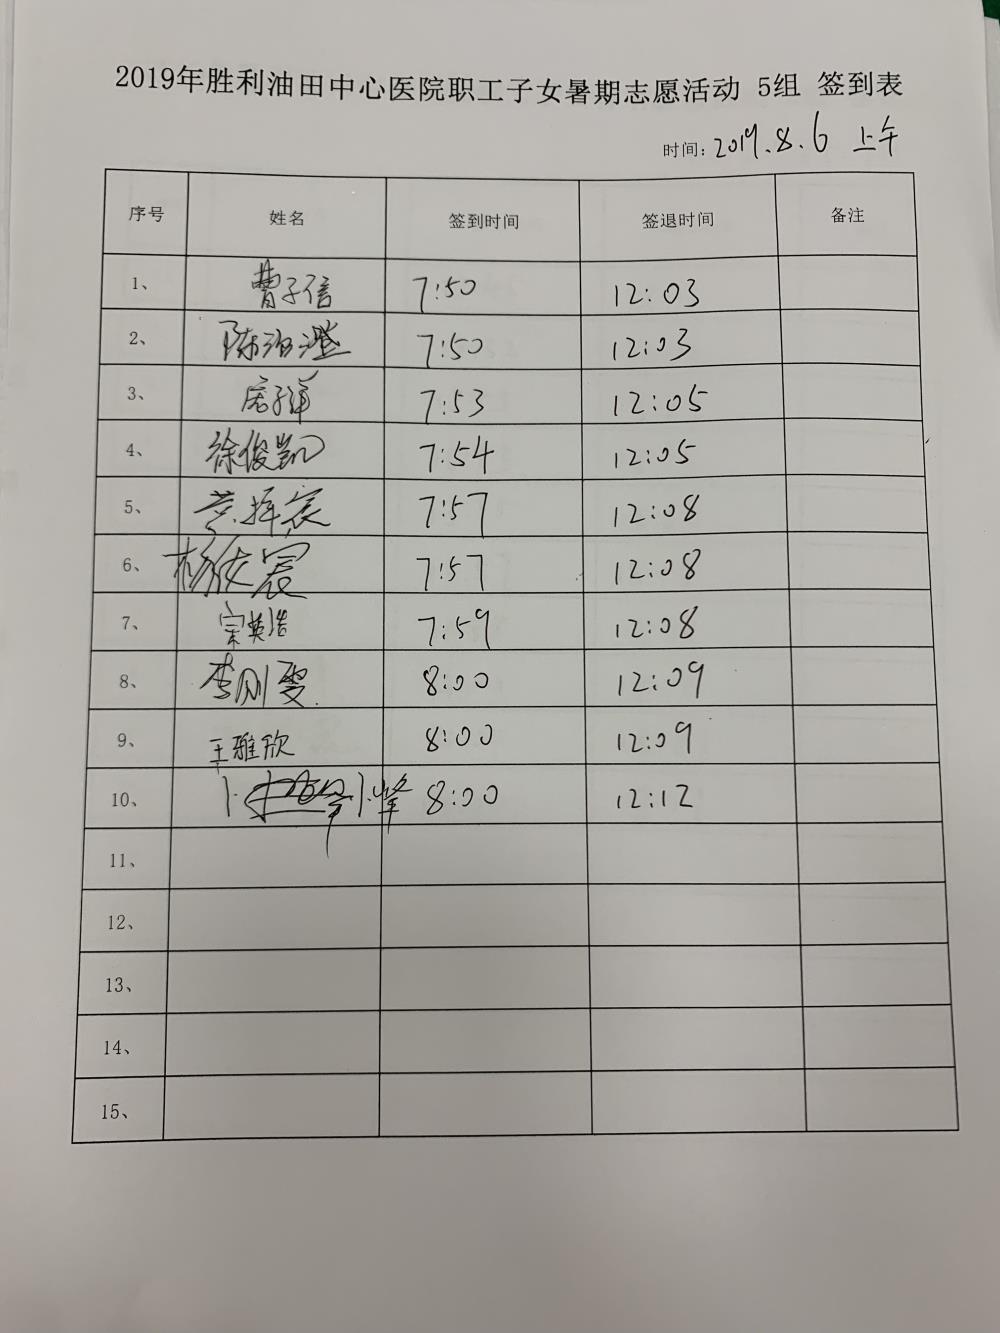 2019年胜利油田中心医院职工子女暑期志愿活动 5组 签到表
时间: 2019.8.6 上午
序号 姓名 签到时间 签退时间 备注
1、 曹子信 7:50 12:03
2、 陈治澄 7:50 12:03
3、 7:53 12:05
4、 徐俊凯 7:54 12:05
5、 7:57 12:08
6、 杨依宸 7:57 12:08
7、 宗英浩 7:59 12:08
8、 李刚雯 8:00 12:09
9、 王雅欣 8:00 12:09
10、 8:00 12:12
11、
12、
13、
14、
15、